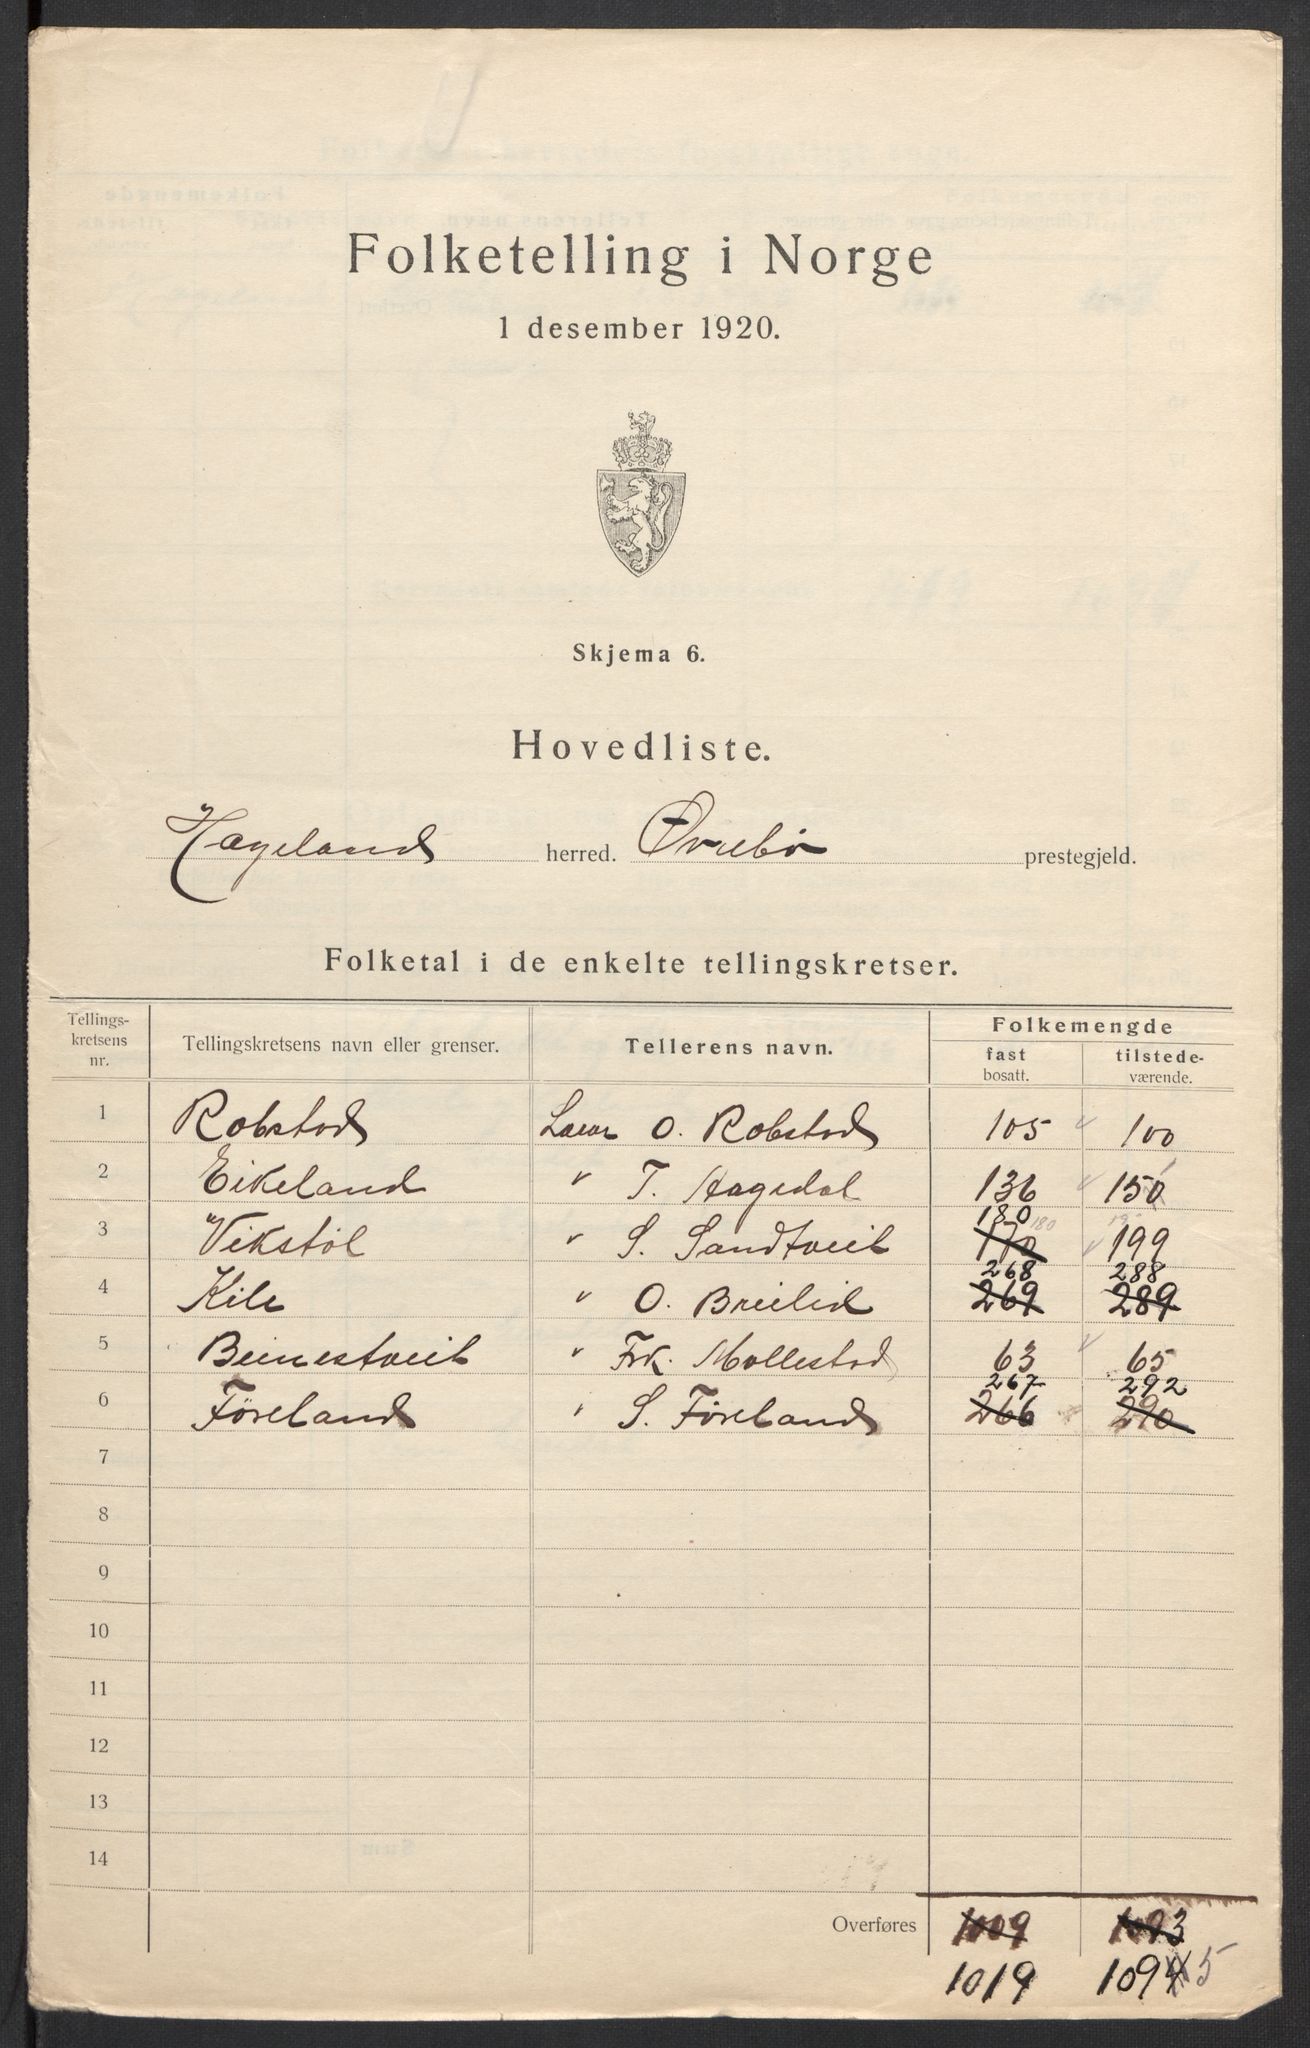 Folketelling i Norge
1 desember 1920.
Skjema 6.
Hovedliste.
Hægeland herred. Øvrebø prestegjeld.
Folketal i de enkelte tellingskretser.
Tellings-kretsens nr. Tellingskretsens navn eller grenser. Tellerens navn. Folkemengde fast bosatt. tilstede-værende.
1 Robstad Lærer O. Robstad 105 100
2 Eikeland " T. Hagedal 136 150
180 180
3 Vikstøl " S. Sandtveit 170 199
268 288
4 Kile " O. Breilid 269 289
5 Beinestveit " Frk. Mollestad 63 65
267 292
6 Føreland " S. Føreland 266 290
7
8
9
10
11
12
13
14
Overføres 1009 1093
1019 1094 5